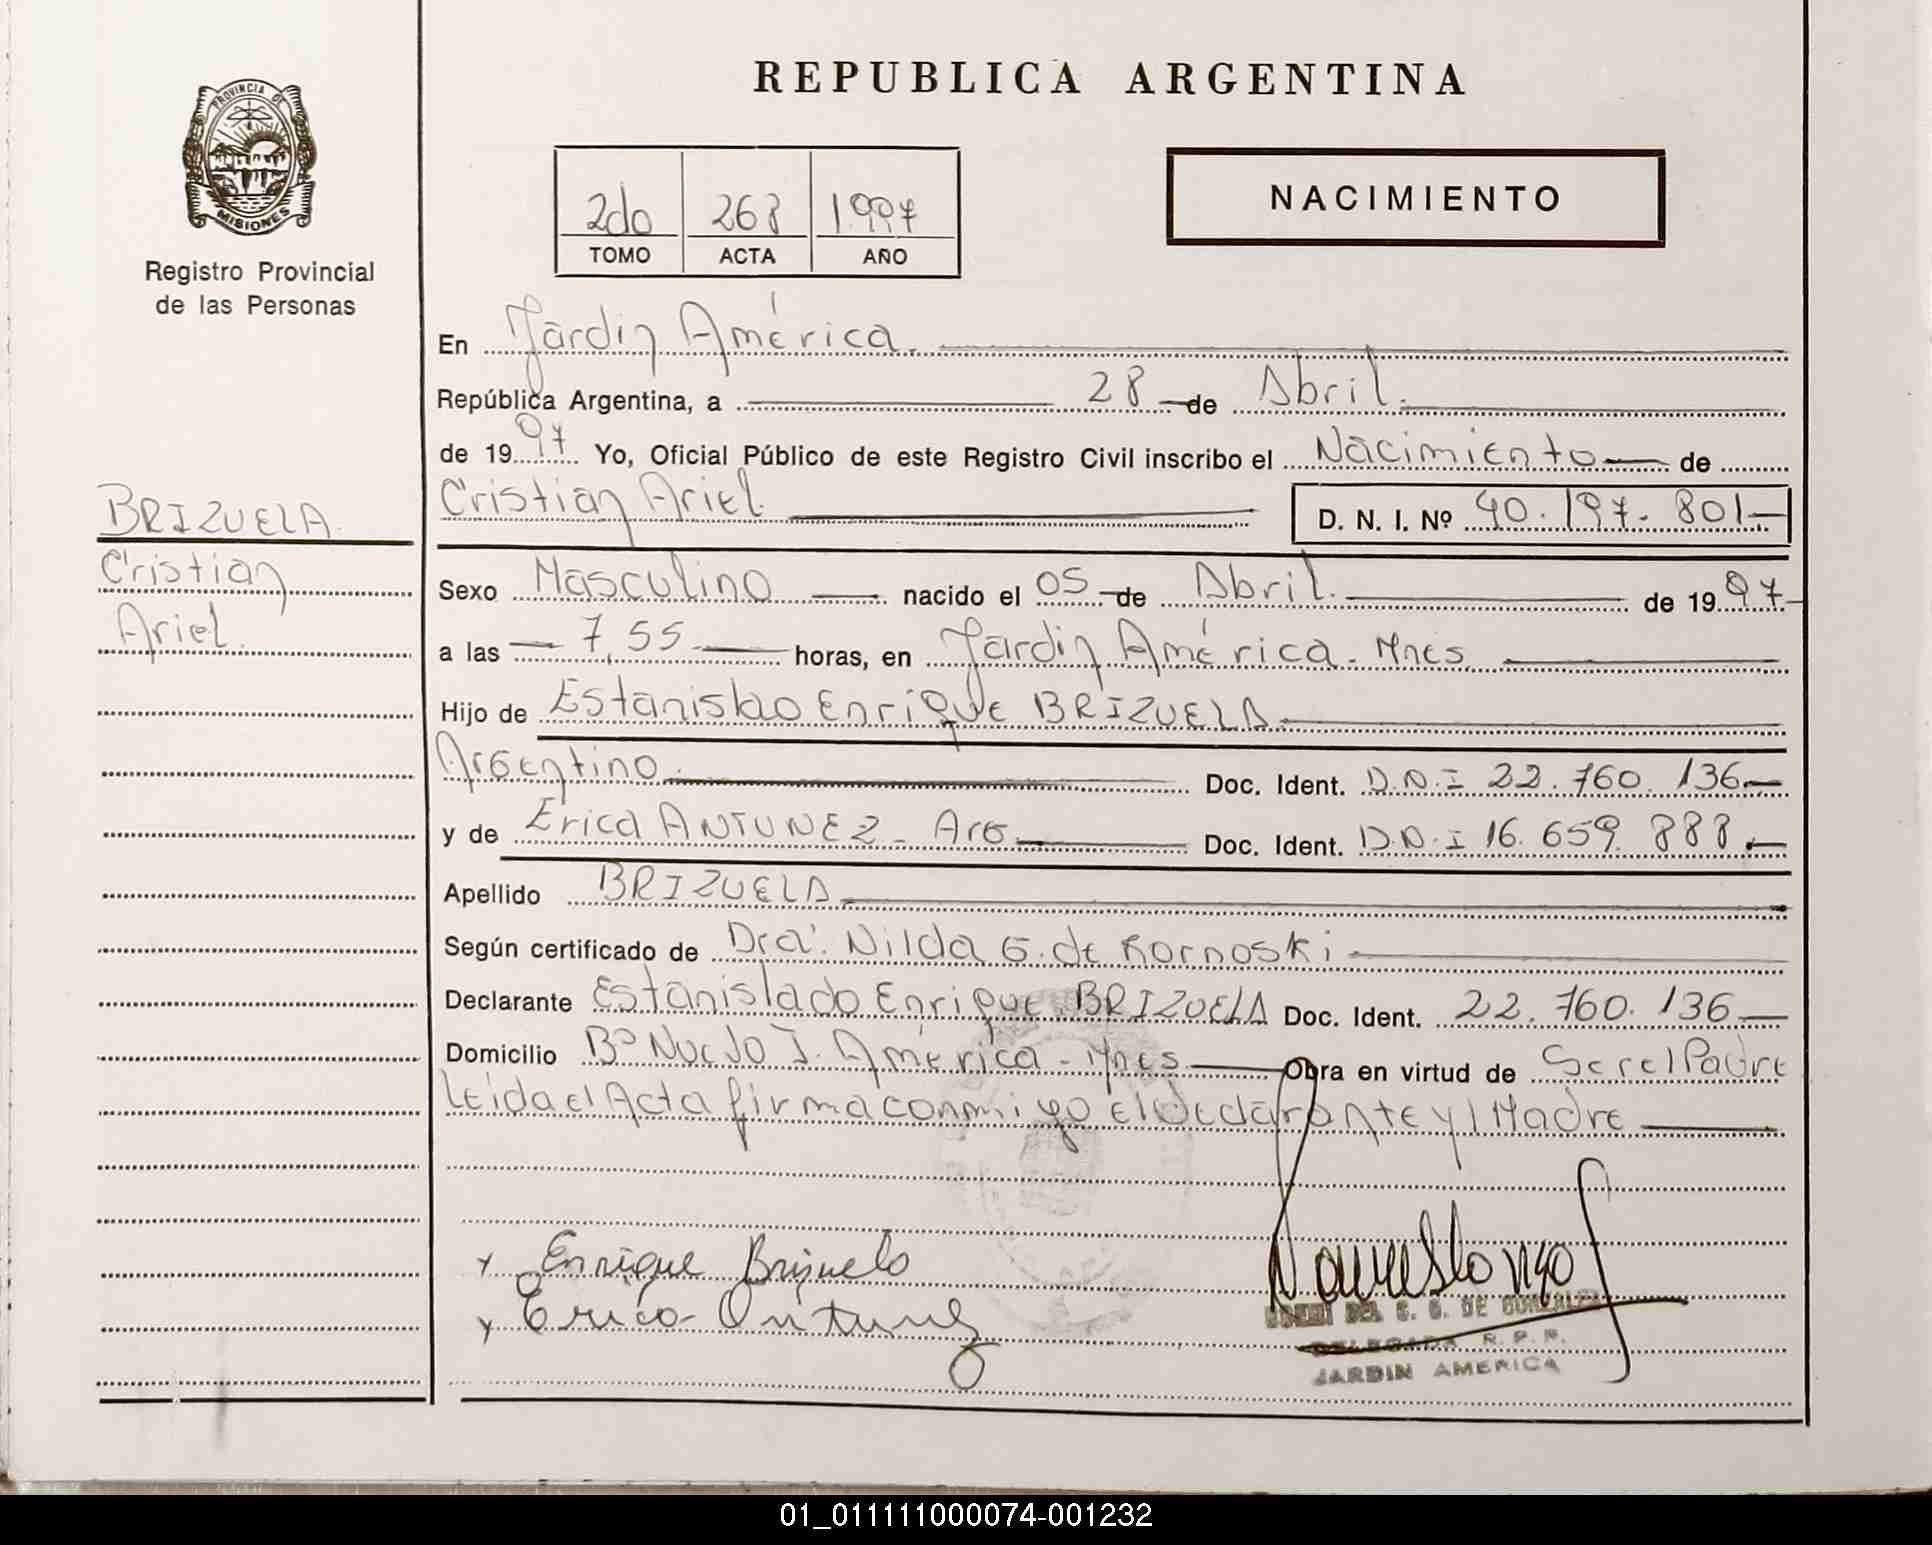 REPUBLICA ARGENTINA
PROVINCIA DE
MISIONES
Registro Provincial
de las Personas
2do 268 1.997
TOMO ACTA AÑO
NACIMIENTO
En Jardin América.
República Argentina, a 28 de Abril.
de 1997 Yo, Oficial Público de este Registro Civil inscribo el Nacimiento de
BRIZUELA
Cristian
Ariel.
Cristian Ariel D. N. I. Nº 40.197.801
Sexo Masculino nacido el 05 de Abril. de 1997
a las 7,55 horas, en Jardin América. Mnes
Hijo de Estanislao Enrique BRIZUELA
Argentino Doc. Ident. D.N.I 22.760.136
y de Erica ANTUNEZ - Arg Doc. Ident. D.N.I 16.659.888
Apellido BRIZUELA
Según certificado de Dra. Nilda G. de Kornoski
Declarante Estanislado Enrique BRIZUELA Doc. Ident. 22.760.136
Domicilio Bº Nuevo J. América - Mnes Obra en virtud de Ser el Padre
Leida el Acta firma conmigo el declarante y l Madre
Enrique Brizuela
Erica Antunez
DEL C. G. DE GONZALEZ
DELEGADA R. P. P.
JARDIN AMERICA
01_011111000074-001232